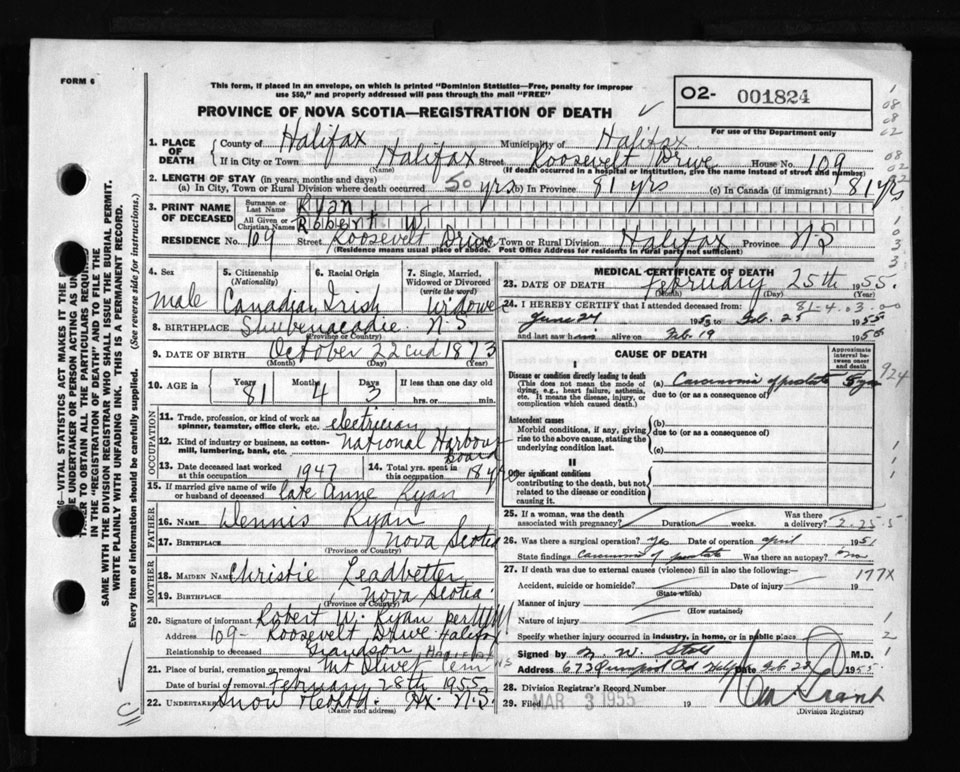 FORM 6
This form, if placed in an envelope, on which is printed "Dominion Statistics—Free, penalty for improper
use $50," and properly addressed will pass through the mail "FREE"
PROVINCE OF NOVA SCOTIA—REGISTRATION OF DEATH
O2- 001824
For use of the Department only
1. PLACE OF DEATH
County of Halifax Municipality of Halifax
If in City or Town Halifax Street Roosevelt Drive House No. 109
(Name) (If death occurred in a hospital or institution, give the name instead of street and number)
2. LENGTH OF STAY (in years, months and days)
(a) In City, Town or Rural Division where death occurred 50 yrs (b) In Province 81 yrs (c) In Canada (if immigrant) 81 yrs
3. PRINT NAME OF DECEASED
Surname or Last Name Ryan
All Given or Christian Names Robert W
RESIDENCE No. 109 Street Roosevelt Drive Town or Rural Division Halifax Province N.S
(Residence means usual place of abode. Post Office Address for residents in rural parts not sufficient)
4. Sex
male
5. Citizenship (Nationality)
Canadian
6. Racial Origin
Irish
7. Single, Married, Widowed or Divorced (write the word)
widower
8. BIRTHPLACE Shubenacadie N.S
(Province or Country)
9. DATE OF BIRTH October 22nd 1873
(Month) (Day) (Year)
10. AGE in Years 81 Months 4 Days 3 If less than one day old
hrs. or min.
OCCUPATION
11. Trade, profession, or kind of work as spinner, teamster, office clerk, etc. electrician
12. Kind of industry or business, as cotton-mill, lumbering, bank, etc. National Harbour Board
13. Date deceased last worked at this occupation 1947
14. Total yrs. spent in this occupation 18 yrs
15. If married give name of wife or husband of deceased late Anne Ryan
FATHER
16. NAME Dennis Ryan
17. BIRTHPLACE Nova Scotia
(Province or Country)
MOTHER
18. MAIDEN NAME Christie Leadbetter
19. BIRTHPLACE Nova Scotia
(Province or Country)
20. Signature of informant Robert W. Ryan per
Address 109 - Roosevelt Drive Halifax
Relationship to deceased Grandson
21. Place of burial, cremation or removal Mt Olivet Cem
Date of burial or removal February 28th 1955
22. UNDERTAKER Snow Hx. N.S.
(Name and address)
MEDICAL CERTIFICATE OF DEATH
23. DATE OF DEATH February 25th 1955
(Month) (Day) (Year)
24. I HEREBY CERTIFY that I attended deceased from: 81-4.03-00
June 24 1953 to Feb. 25 1955
and last saw him alive on Feb. 19 1955
CAUSE OF DEATH
Approximate interval between onset and death
I
Disease or condition directly leading to death
(This does not mean the mode of dying, e.g., heart failure, asthenia, etc. It means the disease, injury, or complication which caused death.)
(a) Carcinoma of prostate 5 yrs
due to (or as a consequence of)
924
Antecedent causes
Morbid conditions, if any, giving rise to the above cause, stating the underlying condition last.
(b)
due to (or as a consequence of)
(c)
II
Other significant conditions
contributing to the death, but not related to the disease or condition causing it.
25. If a woman, was the death associated with pregnancy? Duration weeks. Was there a delivery? 2-25-5
26. Was there a surgical operation? yes Date of operation April 1951
State findings Carcinoma of prostate Was there an autopsy? no
27. If death was due to external causes (violence) fill in also the following:—
177X
Accident, suicide or homicide? Date of injury 19
(State which)
Manner of injury
(How sustained)
Nature of injury
Specify whether injury occurred in industry, in home, or in public place
Signed by N. W. M.D.
Address 673 Quinpool Rd Date Feb. 28 1955
28. Division Registrar's Record Number
29. Filed MAR 3 1955 19
Grant
(Division Registrar)
VITAL STATISTICS ACT MAKES IT THE
UNDERTAKER OR PERSON ACTING AS
TO OBTAIN ALL THE PARTICULARS
IN THE "REGISTRATION OF DEATH" AND TO FILE THE
SAME WITH THE DIVISION REGISTRAR WHO SHALL ISSUE THE BURIAL PERMIT.
WRITE PLAINLY WITH UNFADING INK. THIS IS A PERMANENT RECORD.
Every item of information should be carefully supplied. (See reverse side for instructions.)